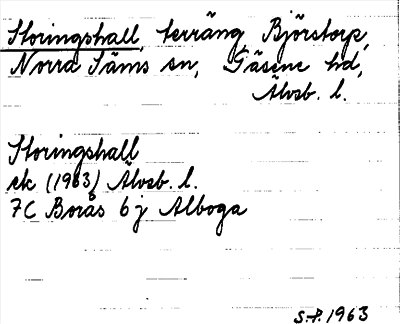 Storingshall, terräng Björstorp,
Norra Säms sn, Gäsene hd,
Älvsb. l.
Storingshall
ek (1963) Älvsb. l.
7C Borås 6 j Alboga
S.P. 1963